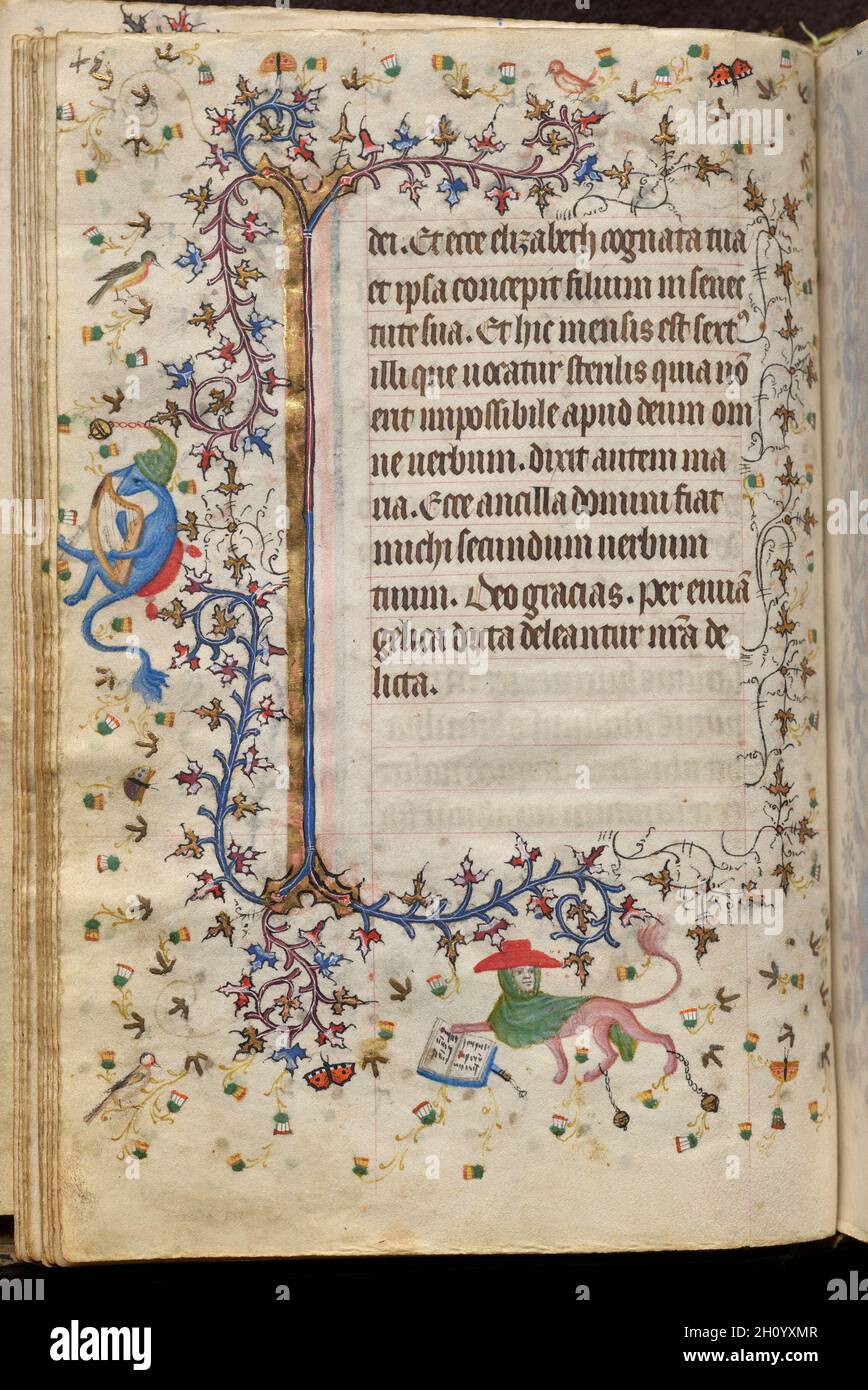 dei. Et ecce elizabeth cognata tua
et ipsa concepit filium in senec
tute sua. Et hic mensis est sextꝰ
illi que uocatur sterilis quia nō
erit impossibile apud deum om
ne uerbum. dixit autem ma
ria. Ecce ancilla domini fiat
michi secundum uerbum
tuum. Deo gracias. Per euuā
gelica dicta deleantur nrā de
licta.
alamy
Image ID: 2H0YXMR
www.alamy.com